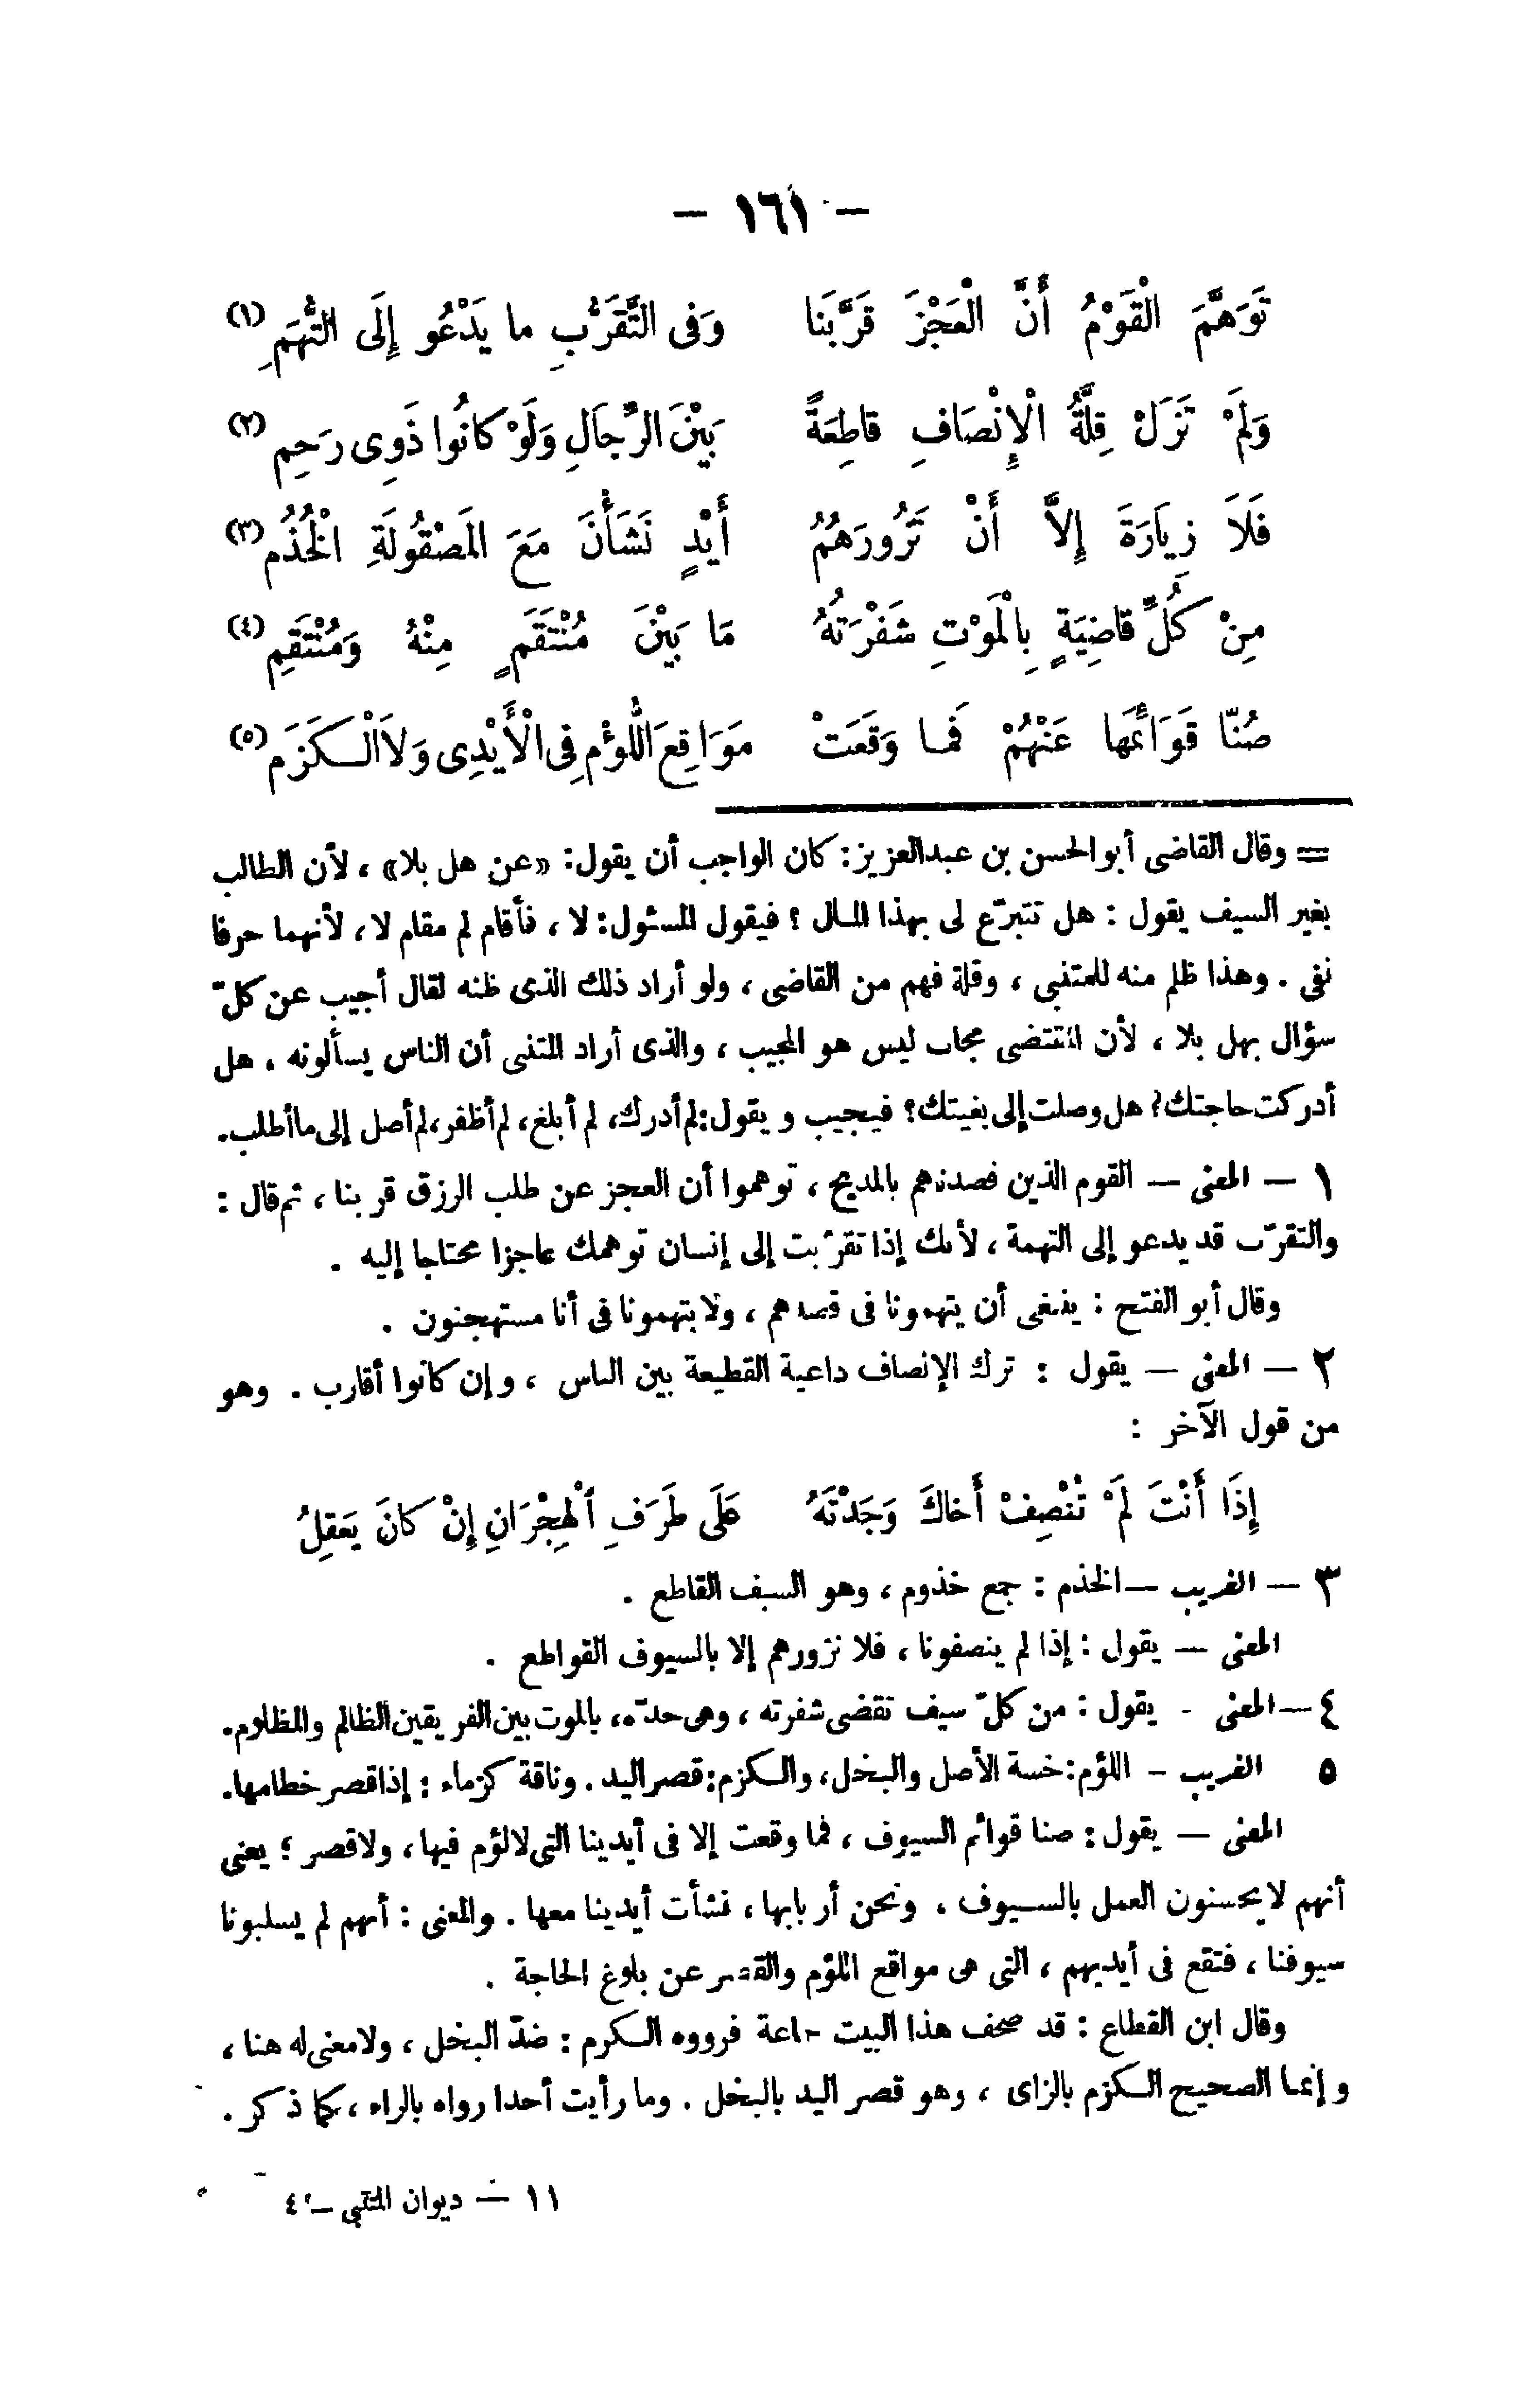 — ١٦١ —
تَوَهَّمَ الْقَوْمُ أَنَّ الْعَجْزَ قَرَّبَنا وَفى التَّقَرُّبِ ما يَدْعُو إِلَى التُّهَمِ (١)
وَلَمْ تَزَلْ قِلَّةُ الْإِنْصَافِ قاطِعَةً بَيْنَ الرِّجالِ وَلَوْ كانُوا ذَوِى رَحِمِ (٢)
فَلَا زِيارَةَ إِلاَّ أَنْ تَزُورَهُمُ أَيْدٍ نَشَأْنَ مَعَ المَصْقُولَةِ الْخُذُمِ (٣)
مِنْ كُلِّ قاضِيَةٍ بِالْمَوْتِ شَفْرَتُهُ مَا بَيْنَ مُنْتَقَمٍ مِنْهُ وَمُنْتَقِمِ (٤)
صُنَّا قَوَائِمَها عَنْهُمْ فَما وَقَعَتْ مَوَاقِعَ اللُّؤْمِ فِى الْأَيْدِى وَلاَ الْكَزَمِ (٥)
= وقال القاضى أبو الحسن بن عبد العزيز: كان الواجب أن يقول: «عن هل بلا» ، لأن الطالب
بغير السيف يقول : هل تتبرّع لى بهذا المال ؟ فيقول المسئول: لا ، فأقام لم مقام لا ، لأنهما حرفا
نفى . وهذا ظلم منه للمتنبى ، وقلة فهم من القاضى ، ولو أراد ذلك الذى ظنه لقال أجيب عن كلّ
سؤال بهل بلا ، لأن المقتضى مجاب ليس هو المجيب ، والذى أراد المتنبى أن الناس يسألونه ، هل
أدركت حاجتك؟ هل وصلت إلى بغيتك؟ فيجيب ويقول: لم أدرك، لم أبلغ، لم أظفر، لم أصل إلى ما أطلب.
١ — المعنى — القوم الذين قصدناهم بالمديح ، توهموا أن العجز عن طلب الرزق قربنا ، ثم قال :
والتقرّب قد يدعو إلى التهمة ، لأنك إذا تقرّبت إلى إنسان توهمك عاجزا محتاجا إليه .
وقال أبو الفتح : ينبغى أن يتهمونا فى قصدهم ، ولا يتهمونا فى أنا مستهجنون .
٢ — المعنى — يقول : ترك الإنصاف داعية القطيعة بين الناس ، وإن كانوا أقارب . وهو
من قول الآخر :
إِذَا أَنْتَ لَمْ تُنْصِفْ أَخاكَ وَجَدْتَهُ عَلَى طَرَفِ الْهِجْرَانِ إِنْ كانَ يَعقِلُ
٣ — الغريب — الخذم : جمع خذوم ، وهو السيف القاطع .
المعنى — يقول : إذا لم ينصفونا ، فلا نزورهم إلا بالسيوف القواطع .
٤ — المعنى - يقول : من كلّ سيف تقضى شفرته ، وهى حدّه، بالموت بين الفريقين الظالم والمظلوم.
٥ الغريب - اللؤم: خسة الأصل والبخل، والكزم: قصر اليد . وناقة كزماء : إذا قصر خطامها.
المعنى — يقول : صنا قوائم السيوف ، فما وقعت إلا فى أيدينا التى لا لؤم فيها ، ولا قصر ؛ يعنى
أنهم لا يحسنون العمل بالسيوف ، ونحن أربابها ، نشأت أيدينا معها . والمعنى : أنهم لم يسلبونا
سيوفنا ، فتقع فى أيديهم ، التى هى مواقع اللؤم والقصر عن بلوغ الحاجة .
وقال ابن القطاع : قد صحف هذا البيت جماعة فرووه الكرم : ضدّ البخل ، ولا معنى له هنا ،
وإنما الصحيح الكزم بالزاى ، وهو قصر اليد بالبخل . وما رأيت أحدا رواه بالراء ، كما ذكر .
١١ — ديوان المتنبى — ٤